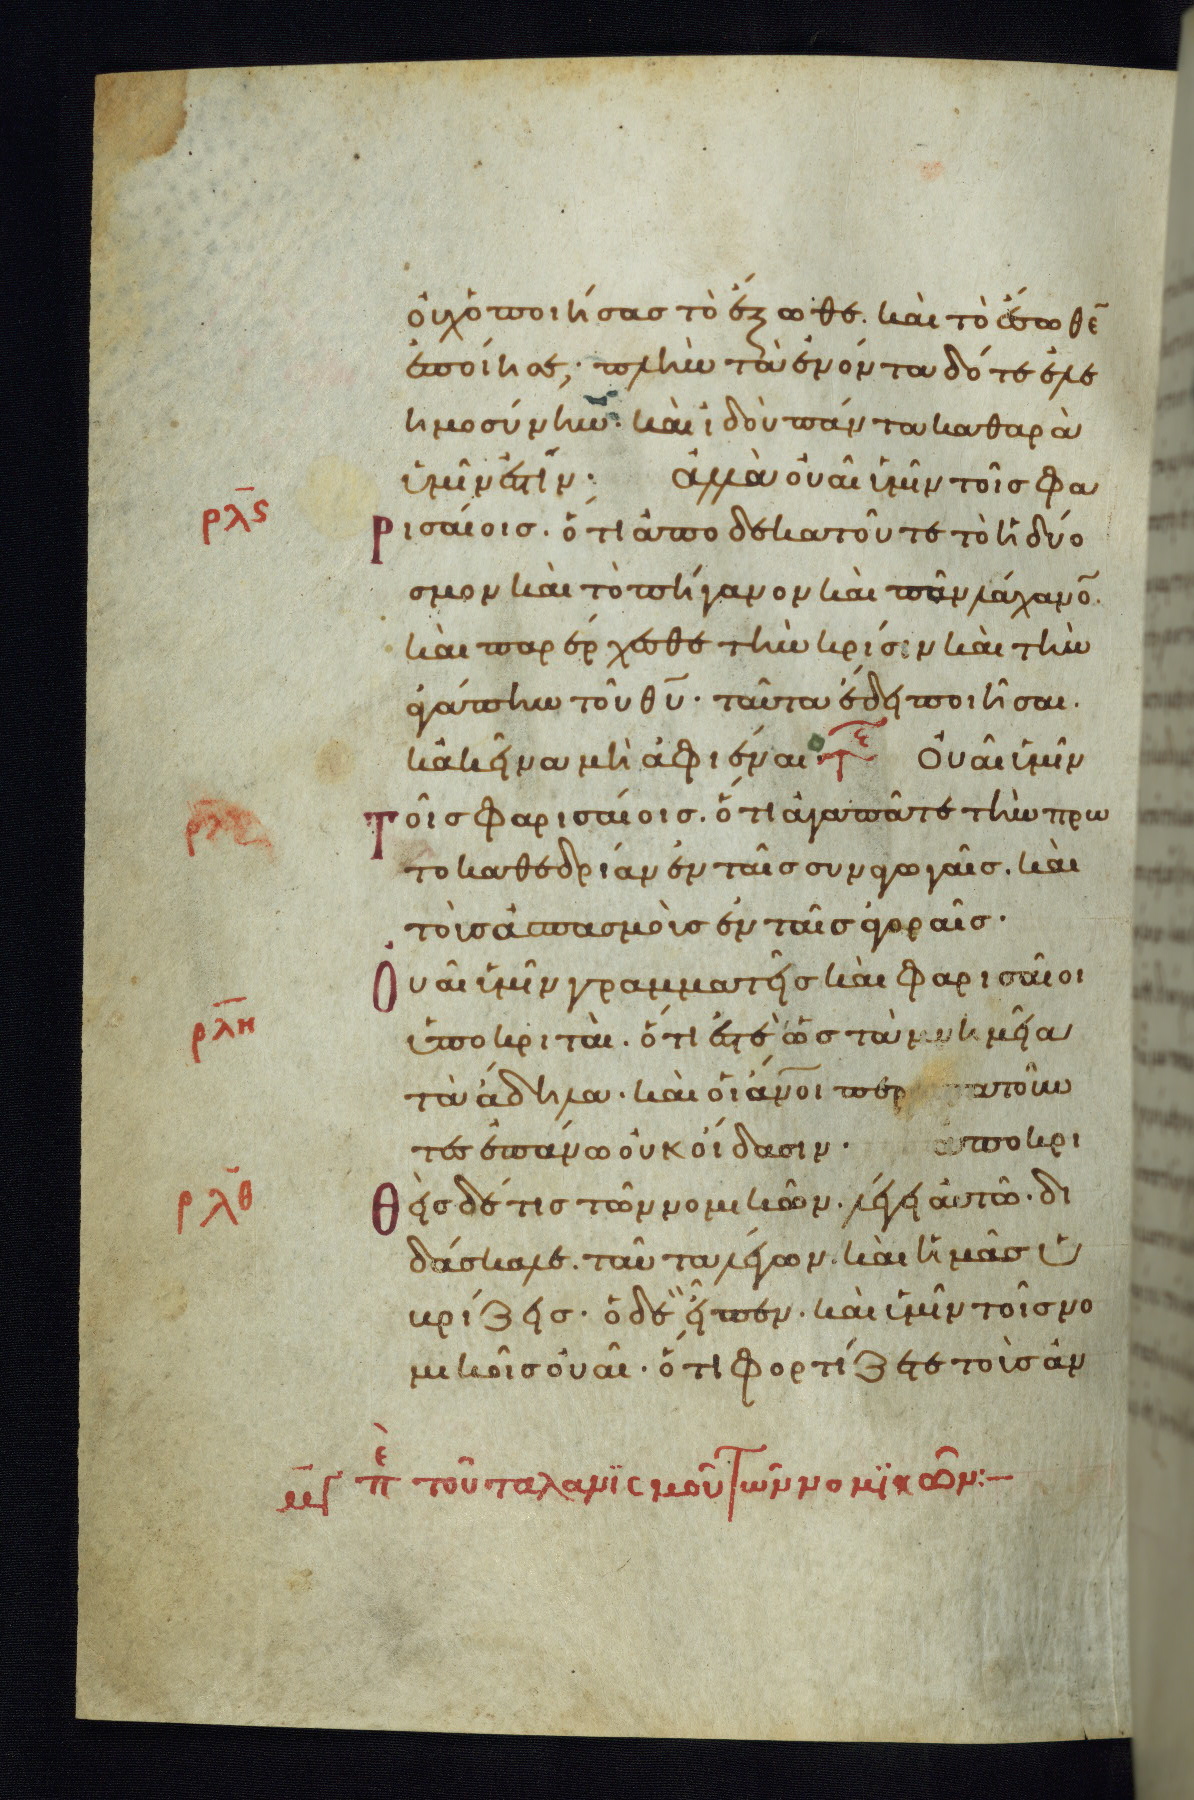 οὐχ ὁ ποιήσας τὸ ἔξωθε. καὶ τὸ ἔσωθε̄
ἐποίησε; πλὴν τὰ ἐνόντα δότε ἐλε
ημοσύνην. καὶ ἰδοὺ πάντα καθαρὰ
ὑμῖν ἐστίν· ἀλλὰ οὐαὶ ὑμῖν τοῖς Φα
ρλ̄ς ρισαίοις. ὅτι ἀποδεκατοῦτε τὸ ἡδύο
σμον καὶ τὸ πήγανον καὶ πᾶν λάχανο̄.
καὶ παρέρχεσθε τὴν κρίσιν καὶ τὴν
ἀγάπην τοῦ θῡ· ταῦτα ἔδει ποιῆσαι.
κἀκεῖνα μὴ ἀφιέναι· τε Οὐαὶ ὑμῖν
ρλζ τοῖς Φαρισαίοις. ὅτι ἀγαπᾶτε τὴν πρω
τοκαθεδρίαν ἐν ταῖς συναγωγαῖς. καὶ
τοὺς ἀσπασμοὺς ἐν ταῖς ἀγοραῖς·
Οὐαὶ ὑμῖν γραμματεῖς καὶ Φαρισαῖοι
ρλη ὑποκριταὶ. ὅτι ἐστὲ ὡς τὰ μνημεῖα
τὰ ἄδηλα· καὶ οἱ ἄν̄οι περιπατοῦν
τες ἐπάνω οὐκ οἴδασιν· ἀποκρι
ρλθ θεὶς δέ τις τῶν νομικῶν. λέγει αὐτῶ· δι
δάσκαλε. ταῦτα λέγων. καὶ ἡμᾶς ὑ
βρίζεις· ὁ δὲ εἶπεν· καὶ ὑμῖν τοῖς νο
μικοῖς οὐαὶ· ὅτι φορτίζετε τοὺς ἀν
πε τοῦ ταλανϊσμοῦ τῶν νομϊκῶν:—